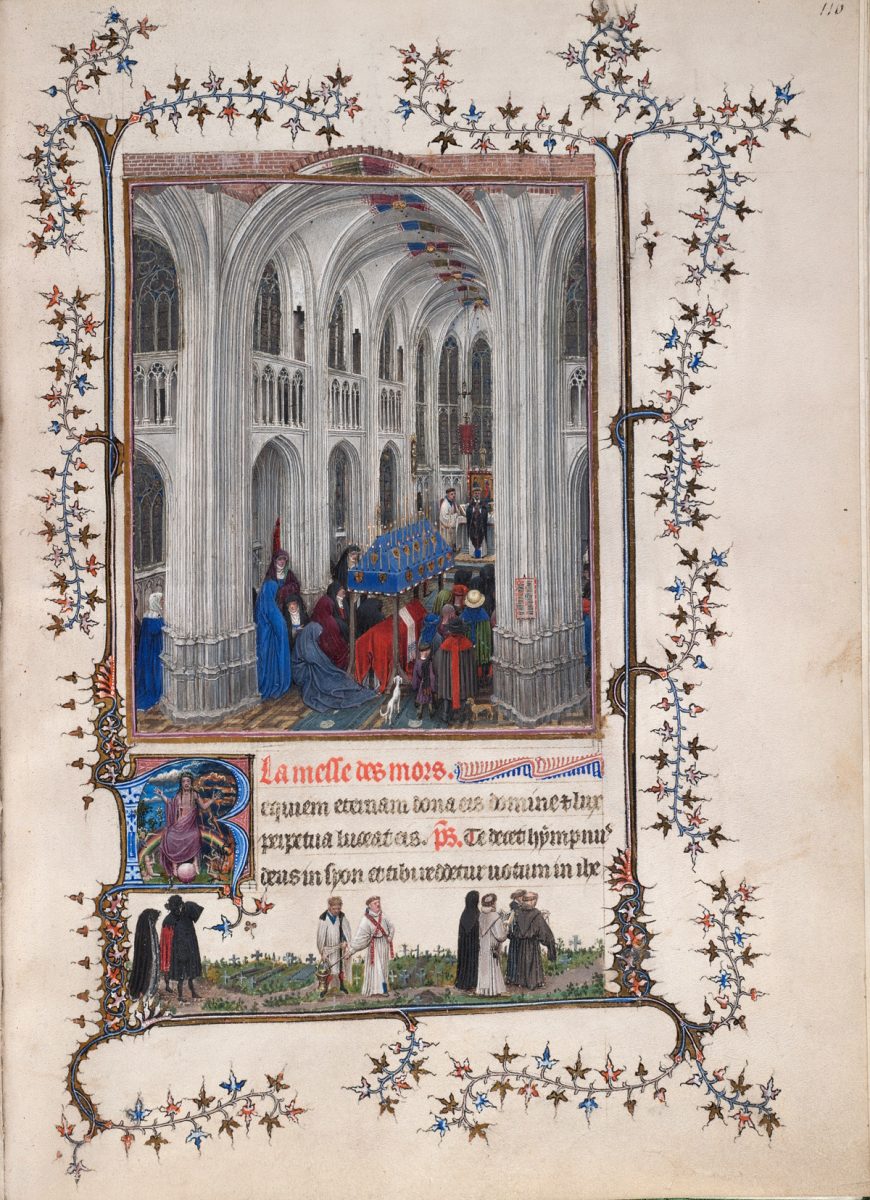 116
La messe des mors.
Requiem eternam dona eis domine & lux
perpetua luceat eis. ps. Te decet hympnus
deus in syon et tibi reddetur uotum in ihe